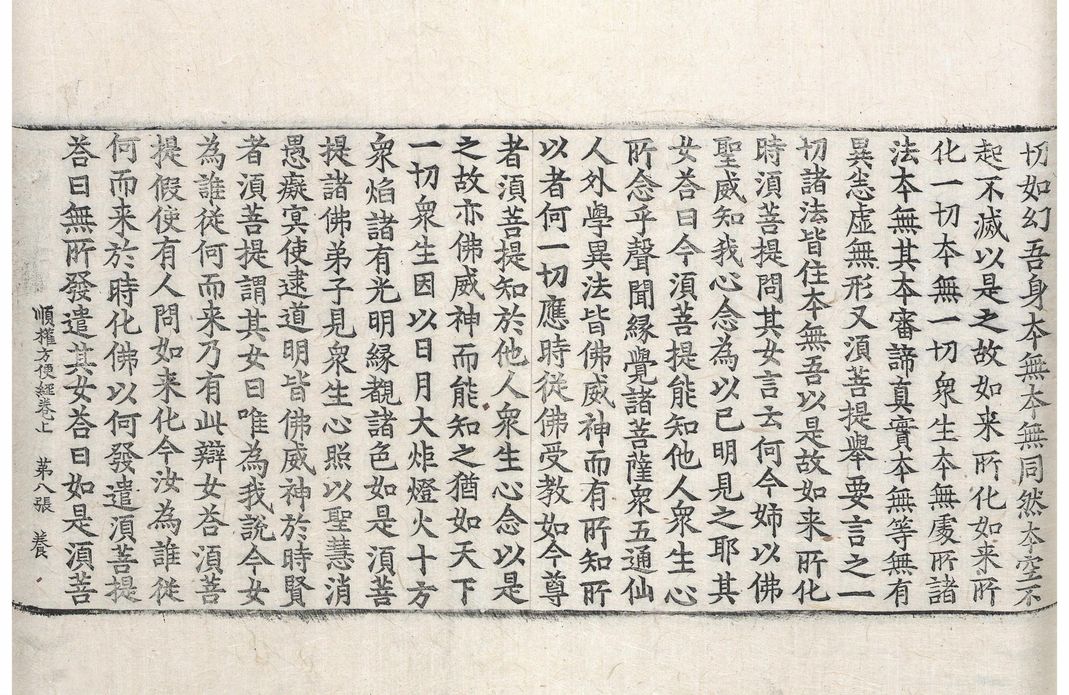 切如幻吾身本無本無同然本空不
起不滅以是之故如来所化如来所
化一切本無一切衆生本無處所諸
法本無其本審諦真實本無等無有
異悉虚無形又湏菩提舉要言之一
切諸法皆住本無吾以是故如来所化
時湏菩提問其女言云何今姉以佛
聖威知我心念為以已明見之耶其
女荅曰今湏菩提能知他人衆生心
所念乎聲聞縁覺諸菩薩衆五通仙
人外學異法皆佛威神而有所知所
以者何一切應時從佛受教如今尊
者湏菩提知於他人衆生心念以是
之故亦佛威神而能知之猶如天下
一切衆生因以日月大炬燈火十方
衆焰諸有光明縁覩諸色如是湏菩
提諸佛弟子見衆生心照以聖慧消
愚癡冥使逮道明皆佛威神於時賢
者湏菩提謂其女曰唯為我說今女
為誰從何而来乃有此辯女荅湏菩
提假使有人問如来化今汝為誰從
何而来於時化佛以何發遣湏菩提
荅曰無所發遣其女荅曰如是湏菩
順權方便經卷上 第八張 養